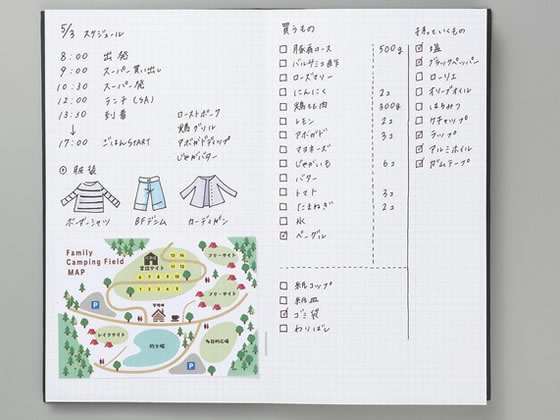 5/3 スケジュール
8:00 出発
9:00 スーパー買い出し
10:30 スーパー発
12:00 ランチ (SA)
13:30 到着
↓
17:00 ごはんSTART
ローストポーク
鶏グリル
アボカドディップ
じゃがバター
服装
ボーダーシャツ
BFデニム
カーディガン
Family
Camping Field
MAP
常設サイト
フリーサイト
フリーサイト
管理棟
レイクサイト
釣り場
多目的広場
P
P
13 14
11 12
6 7 8 9 10
1 2 3 4 5
買うもの
豚肩ロース 500g
バルサミコ酢
ローズマリー
にんにく 2コ
鶏もも肉 300g
レモン 2コ
アボカド 3コ
マヨネーズ
じゃがいも 6コ
バター
トマト 3コ
たまねぎ 2コ
氷
ベーグル
紙コップ
紙皿
ゴミ袋
わりばし
持っていくもの
塩
ブラックペッパー
ローリエ
オリーブオイル
はちみつ
ケチャップ
ラップ
アルミホイル
ガムテープ